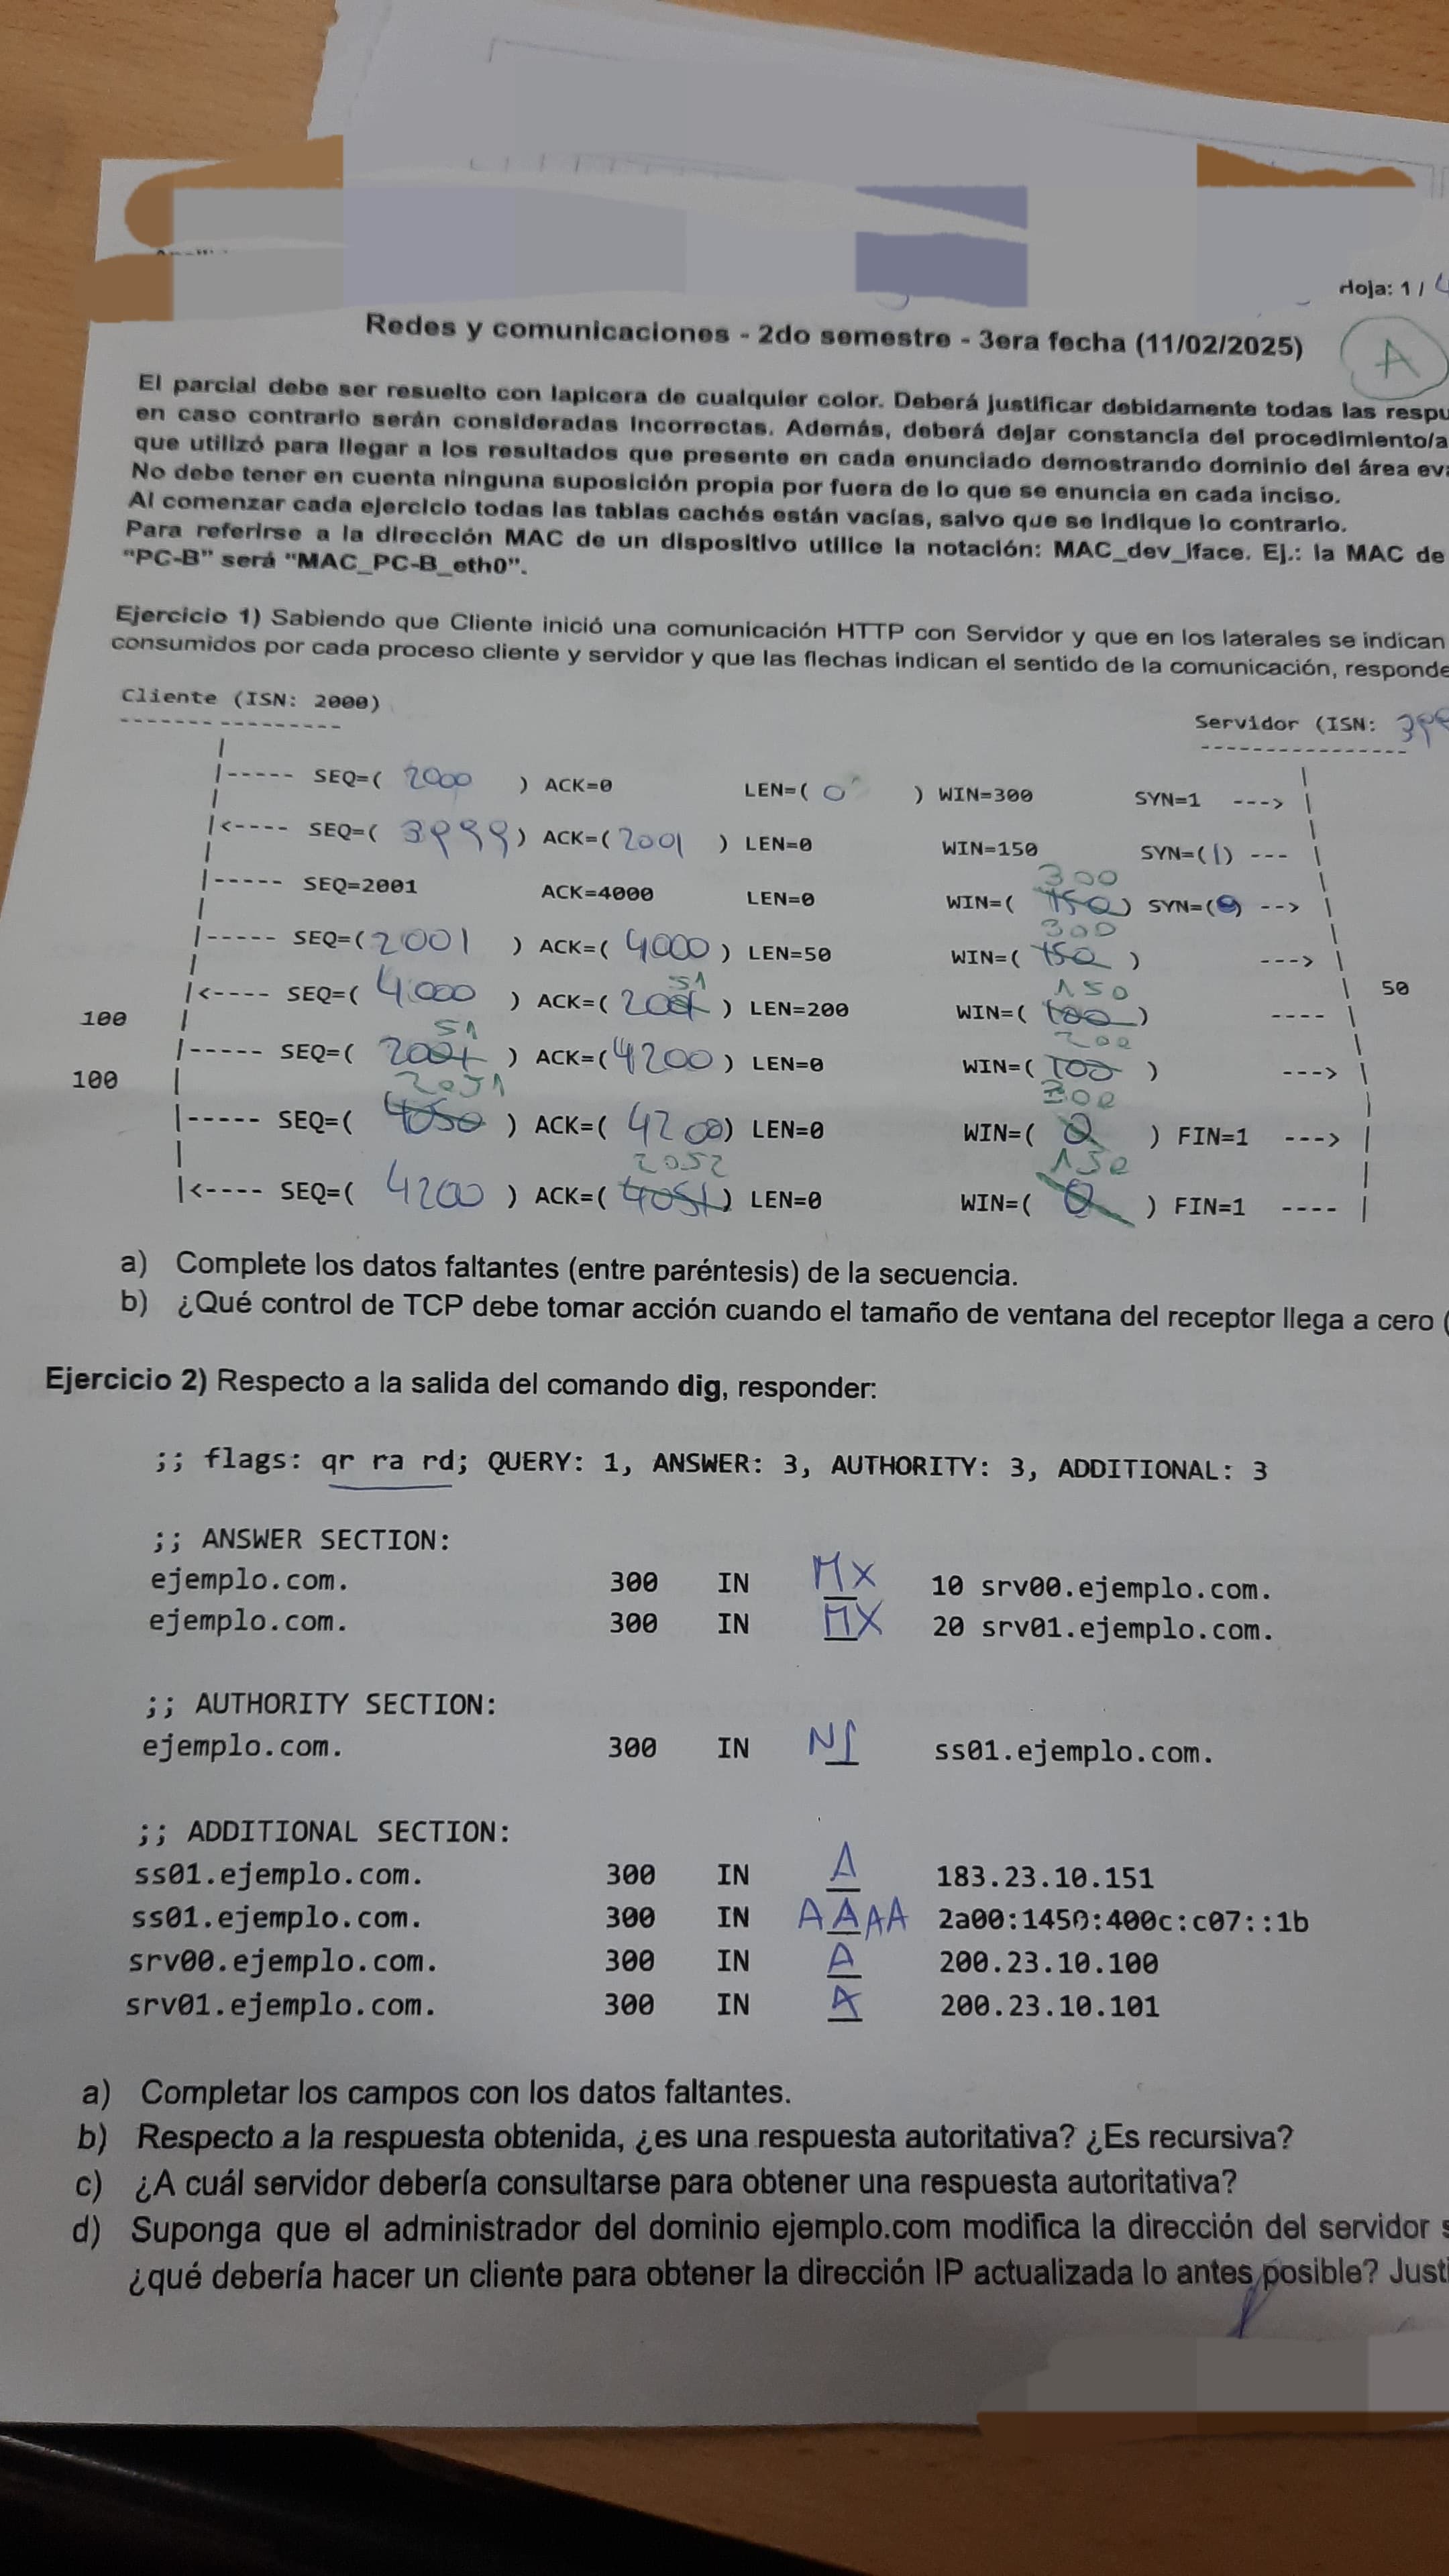 Hoja: 1 /
Redes y comunicaciones - 2do semestre - 3era fecha (11/02/2025)
A
El parcial debe ser resuelto con lapicera de cualquier color. Deberá justificar debidamente todas las respu
en caso contrario serán consideradas incorrectas. Además, deberá dejar constancia del procedimiento/a
que utilizó para llegar a los resultados que presente en cada enunciado demostrando dominio del área eva
No debe tener en cuenta ninguna suposición propia por fuera de lo que se enuncia en cada inciso.
Al comenzar cada ejercicio todas las tablas cachés están vacías, salvo que se indique lo contrario.
Para referirse a la dirección MAC de un dispositivo utilice la notación: MAC_dev_iface. Ej.: la MAC de
"PC-B" será "MAC_PC-B_eth0".
Ejercicio 1) Sabiendo que Cliente inició una comunicación HTTP con Servidor y que en los laterales se indican
consumidos por cada proceso cliente y servidor y que las flechas indican el sentido de la comunicación, responde
Cliente (ISN: 2000)
Servidor (ISN:
|----- SEQ=( 2000 ) ACK=0 LEN=( 0 ) WIN=300 SYN=1 ---> |
|<---- SEQ=( 3999 ) ACK=( 2001 ) LEN=0 WIN=150 SYN=(1) --- |
300
|----- SEQ=2001 ACK=4000 LEN=0 WIN=( 150 ) SYN=(0) --> |
300
|----- SEQ=( 2001 ) ACK=( 4000 ) LEN=50 WIN=( 150 ) ---> |
51 150
|<---- SEQ=( 4000 ) ACK=( 2001 ) LEN=200 WIN=( 100 ) ---- | 50
100
51 200
|----- SEQ=( 2001 ) ACK=( 4200 ) LEN=0 WIN=( 100 ) ---> |
100
2051 300
|----- SEQ=( 4050 ) ACK=( 4200 ) LEN=0 WIN=( 0 ) FIN=1 ---> |
2052 150
|<---- SEQ=( 4200 ) ACK=( 4051 ) LEN=0 WIN=( 0 ) FIN=1 ---- |
a) Complete los datos faltantes (entre paréntesis) de la secuencia.
b) ¿Qué control de TCP debe tomar acción cuando el tamaño de ventana del receptor llega a cero (
Ejercicio 2) Respecto a la salida del comando dig, responder:
;; flags: qr ra rd; QUERY: 1, ANSWER: 3, AUTHORITY: 3, ADDITIONAL: 3
;; ANSWER SECTION:
ejemplo.com. 300 IN MX 10 srv00.ejemplo.com.
ejemplo.com. 300 IN MX 20 srv01.ejemplo.com.
;; AUTHORITY SECTION:
ejemplo.com. 300 IN NS ss01.ejemplo.com.
;; ADDITIONAL SECTION:
ss01.ejemplo.com. 300 IN A 183.23.10.151
ss01.ejemplo.com. 300 IN AAAA 2a00:1450:400c:c07::1b
srv00.ejemplo.com. 300 IN A 200.23.10.100
srv01.ejemplo.com. 300 IN A 200.23.10.101
a) Completar los campos con los datos faltantes.
b) Respecto a la respuesta obtenida, ¿es una respuesta autoritativa? ¿Es recursiva?
c) ¿A cuál servidor debería consultarse para obtener una respuesta autoritativa?
d) Suponga que el administrador del dominio ejemplo.com modifica la dirección del servidor s
¿qué debería hacer un cliente para obtener la dirección IP actualizada lo antes posible? Justi